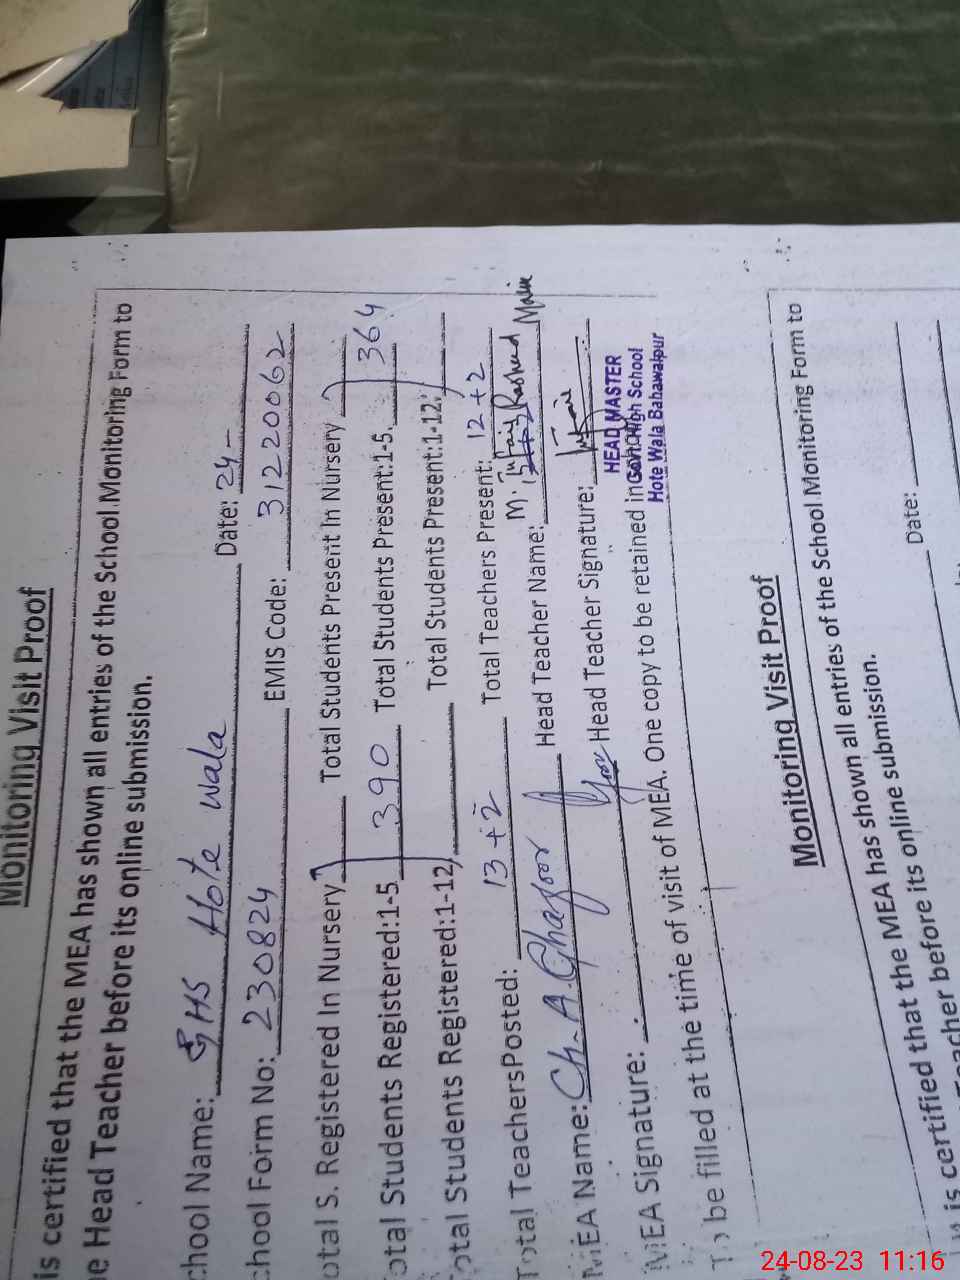 Monitoring Visit Proof
is certified that the MEA has shown all entries of the School Monitoring Form to
he Head Teacher before its online submission.
chool Name: GHS Hote Wala Date: 24-
chool Form No: 230824 EMIS Code: 31220062
otal S. Registered In Nursery Total Students Present In Nursery
otal Students Registered:1-5 390 Total Students Present:1-5. 364
otal Students Registered:1-12 Total Students Present:1-12:
Total Teachers Posted: 13+2 Total Teachers Present: 12+2
MEA Name: Ch. A Ghafoor Head Teacher Name: M. Rasheed
MEA Signature: Head Teacher Signature:
HEAD MASTER
Govt. High School
Hote Wala Bahawalpur
To be filled at the time of visit of MEA. One copy to be retained in
Monitoring Visit Proof
is certified that the MEA has shown all entries of the School Monitoring Form to
Teacher before its online submission.
Date:
24-08-23 11:16